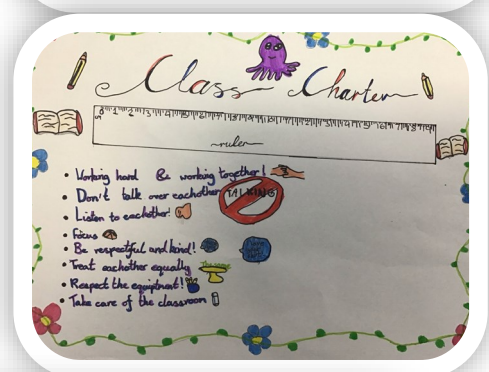 Class Charter
ruler
• Working hard & working together!
• Don't talk over eachother
TALKING
• Listen to eachother!
• Focus
• Be respectful and kind!
• Treat eachother equally
• Respect the equiptment!
• Take care of the classroom